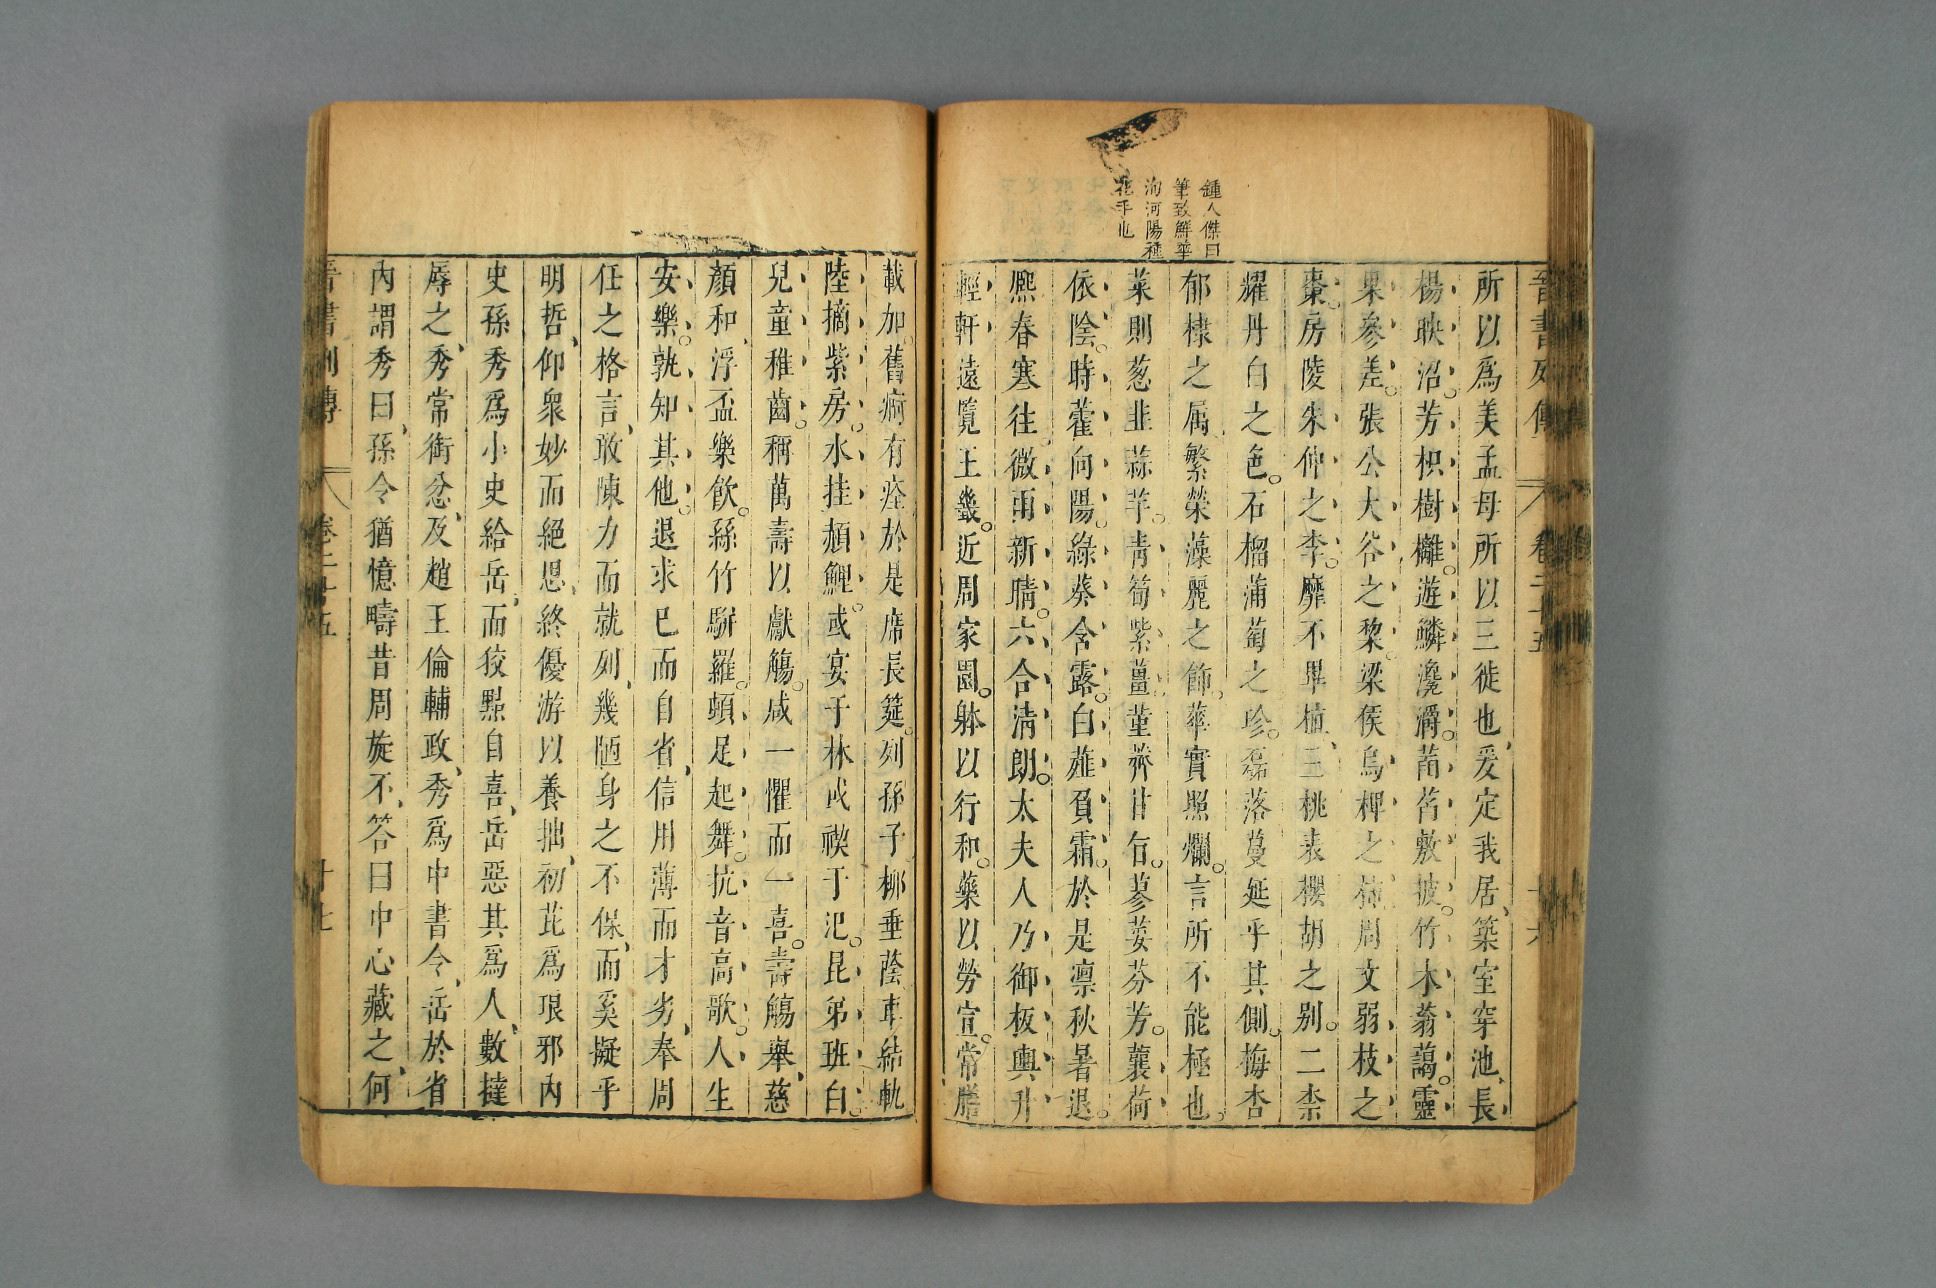 鍾人傑曰
筆致鮮華
洵河陽種
花手也
晉書列傳 卷二十五 十六
所以爲美孟母所以三徙也爰定我居築室穿池長
楊映沼芳枳樹欐遊鱗瀺灂菡萏敷披竹木蓊藹靈
果參差張公大谷之棃梁侯烏椑之柹周文弱枝之
棗房陵朱仲之李靡不畢植三桃表櫻胡之別二柰
耀丹白之色石榴蒲萄之珍磊落蔓延乎其側梅杏
郁棣之属繁榮藻麗之飾華實照爛言所不能極也
菜則葱韭蒜芋青筍紫薑菫薺甘㫖蓼荽芬芳蘘荷
依陰時藿向陽綠葵含露白薤負霜於是凛秋暑退
熈春寒往微雨新晴六合淸朗太夫人乃御板輿升
輕軒遠覽王畿近周家園躰以行和藥以勞宣常膳
載加舊痾有痊於是席長筵列孫子柳垂蔭車結軌
陸摘紫房水挂頳鯉或宴于林或禊于汜昆弟班白
兒童稚齒稱萬壽以獻觴咸一懼而一喜壽觴舉慈
顏和浮盃樂飲絲竹駢羅頓足起舞抗音高歌人生
安樂孰知其他退求巳而自省信用薄而才劣奉周
任之格言敢陳力而就列幾陋身之不保而奚擬乎
明哲仰衆妙而絕思終優游以養拙初芘爲琅邪內
史孫秀爲小史給岳而狡黠自喜岳惡其爲人數撻
辱之秀常銜忿及趙王倫輔政秀爲中書令岳於省
內謂秀曰孫令猶憶疇昔周旋不答曰中心藏之何
晉書列傳 卷二十五 十七